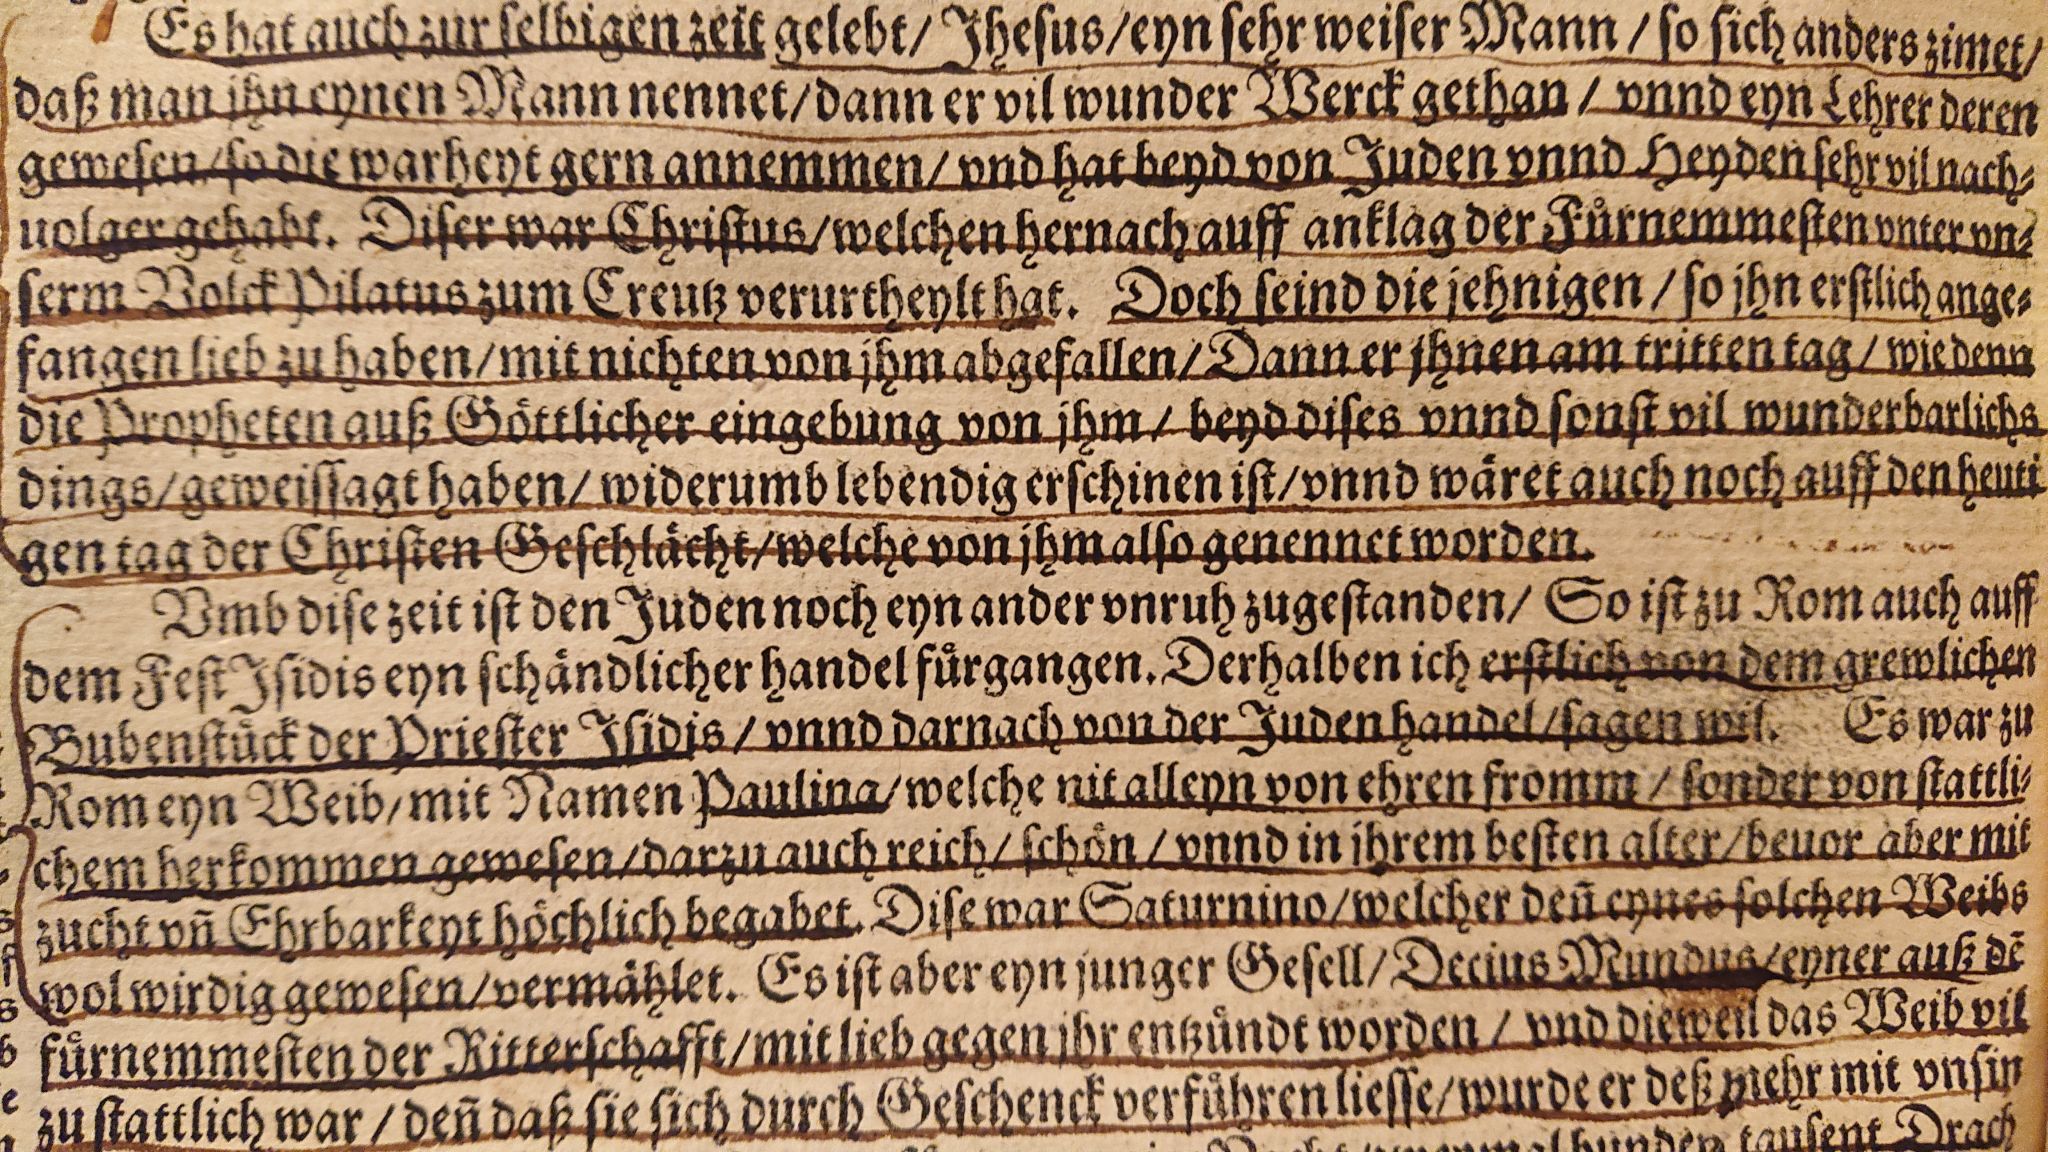 Es hat auch zur selbigen zeit gelebt/ Jhesus/ eyn sehr weiser Mann / so sich anders zimet/
daß man jhn eynen Mann nennet/ dann er vil wunder Werck gethan / vnnd eyn Lehrer deren
gewesen/ so die warheyt gern annemmen/ vnd hat beyd von Juden vnnd Heyden sehr vil nach⸗
uolger gehabt. Diser war Christus/ welchen hernach auff anklag der Fuͤrnemmesten vnter vn⸗
serm Volck Pilatus zum Creutz verurtheylt hat. Doch seind die jehnigen / so jhn erstlich ange⸗
fangen lieb zu haben/ mit nichten von jhm abgefallen/ Dann er jhnen am tritten tag / wie deñ
die Propheten auß Goͤttlicher eingebung von jhm / beyd dises vnnd sonst vil wunderbarlichs
dings/ geweissagt haben/ widerumb lebendig erschinen ist/ vnnd waͤret auch noch auff den heuti
gen tag der Christen Geschlaͤcht/ welche von jhm also genennet worden.
Vmb dise zeit ist den Juden noch eyn ander vnruh zugestanden/ So ist zu Rom auch auff
dem Fest Isidis eyn schaͤndlicher handel fuͤrgangen. Derhalben ich erstlich von dem grewlichen
Bubenstuͤck der Priester Isidis / vnnd darnach von der Juden handel / sagen wil. Es war zu
Rom eyn Weib/ mit Namen Paulina/ welche nit alleyn von ehren fromm / sonder von stattli⸗
chem herkommen gewesen/ darzu auch reich/ schoͤn / vnnd in jhrem besten alter / beuor aber mit
zucht vñ Ehrbarkeyt hoͤchlich begabet. Dise war Saturnino/ welcher deñ eynes solchen Weibs
wol wirdig gewesen/ vermaͤhlet. Es ist aber eyn junger Gesell/ Decius Mundus/ eyner auß dẽ
fuͤrnemmesten der Ritterschafft/ mit lieb gegen jhr entzuͤndt worden / vnd dieweil das Weib vil
zu stattlich war / deñ daß sie sich durch Geschenck verfuͤhren liesse/ wurde er deß mehr mit vnsin
hunder tausent Drach